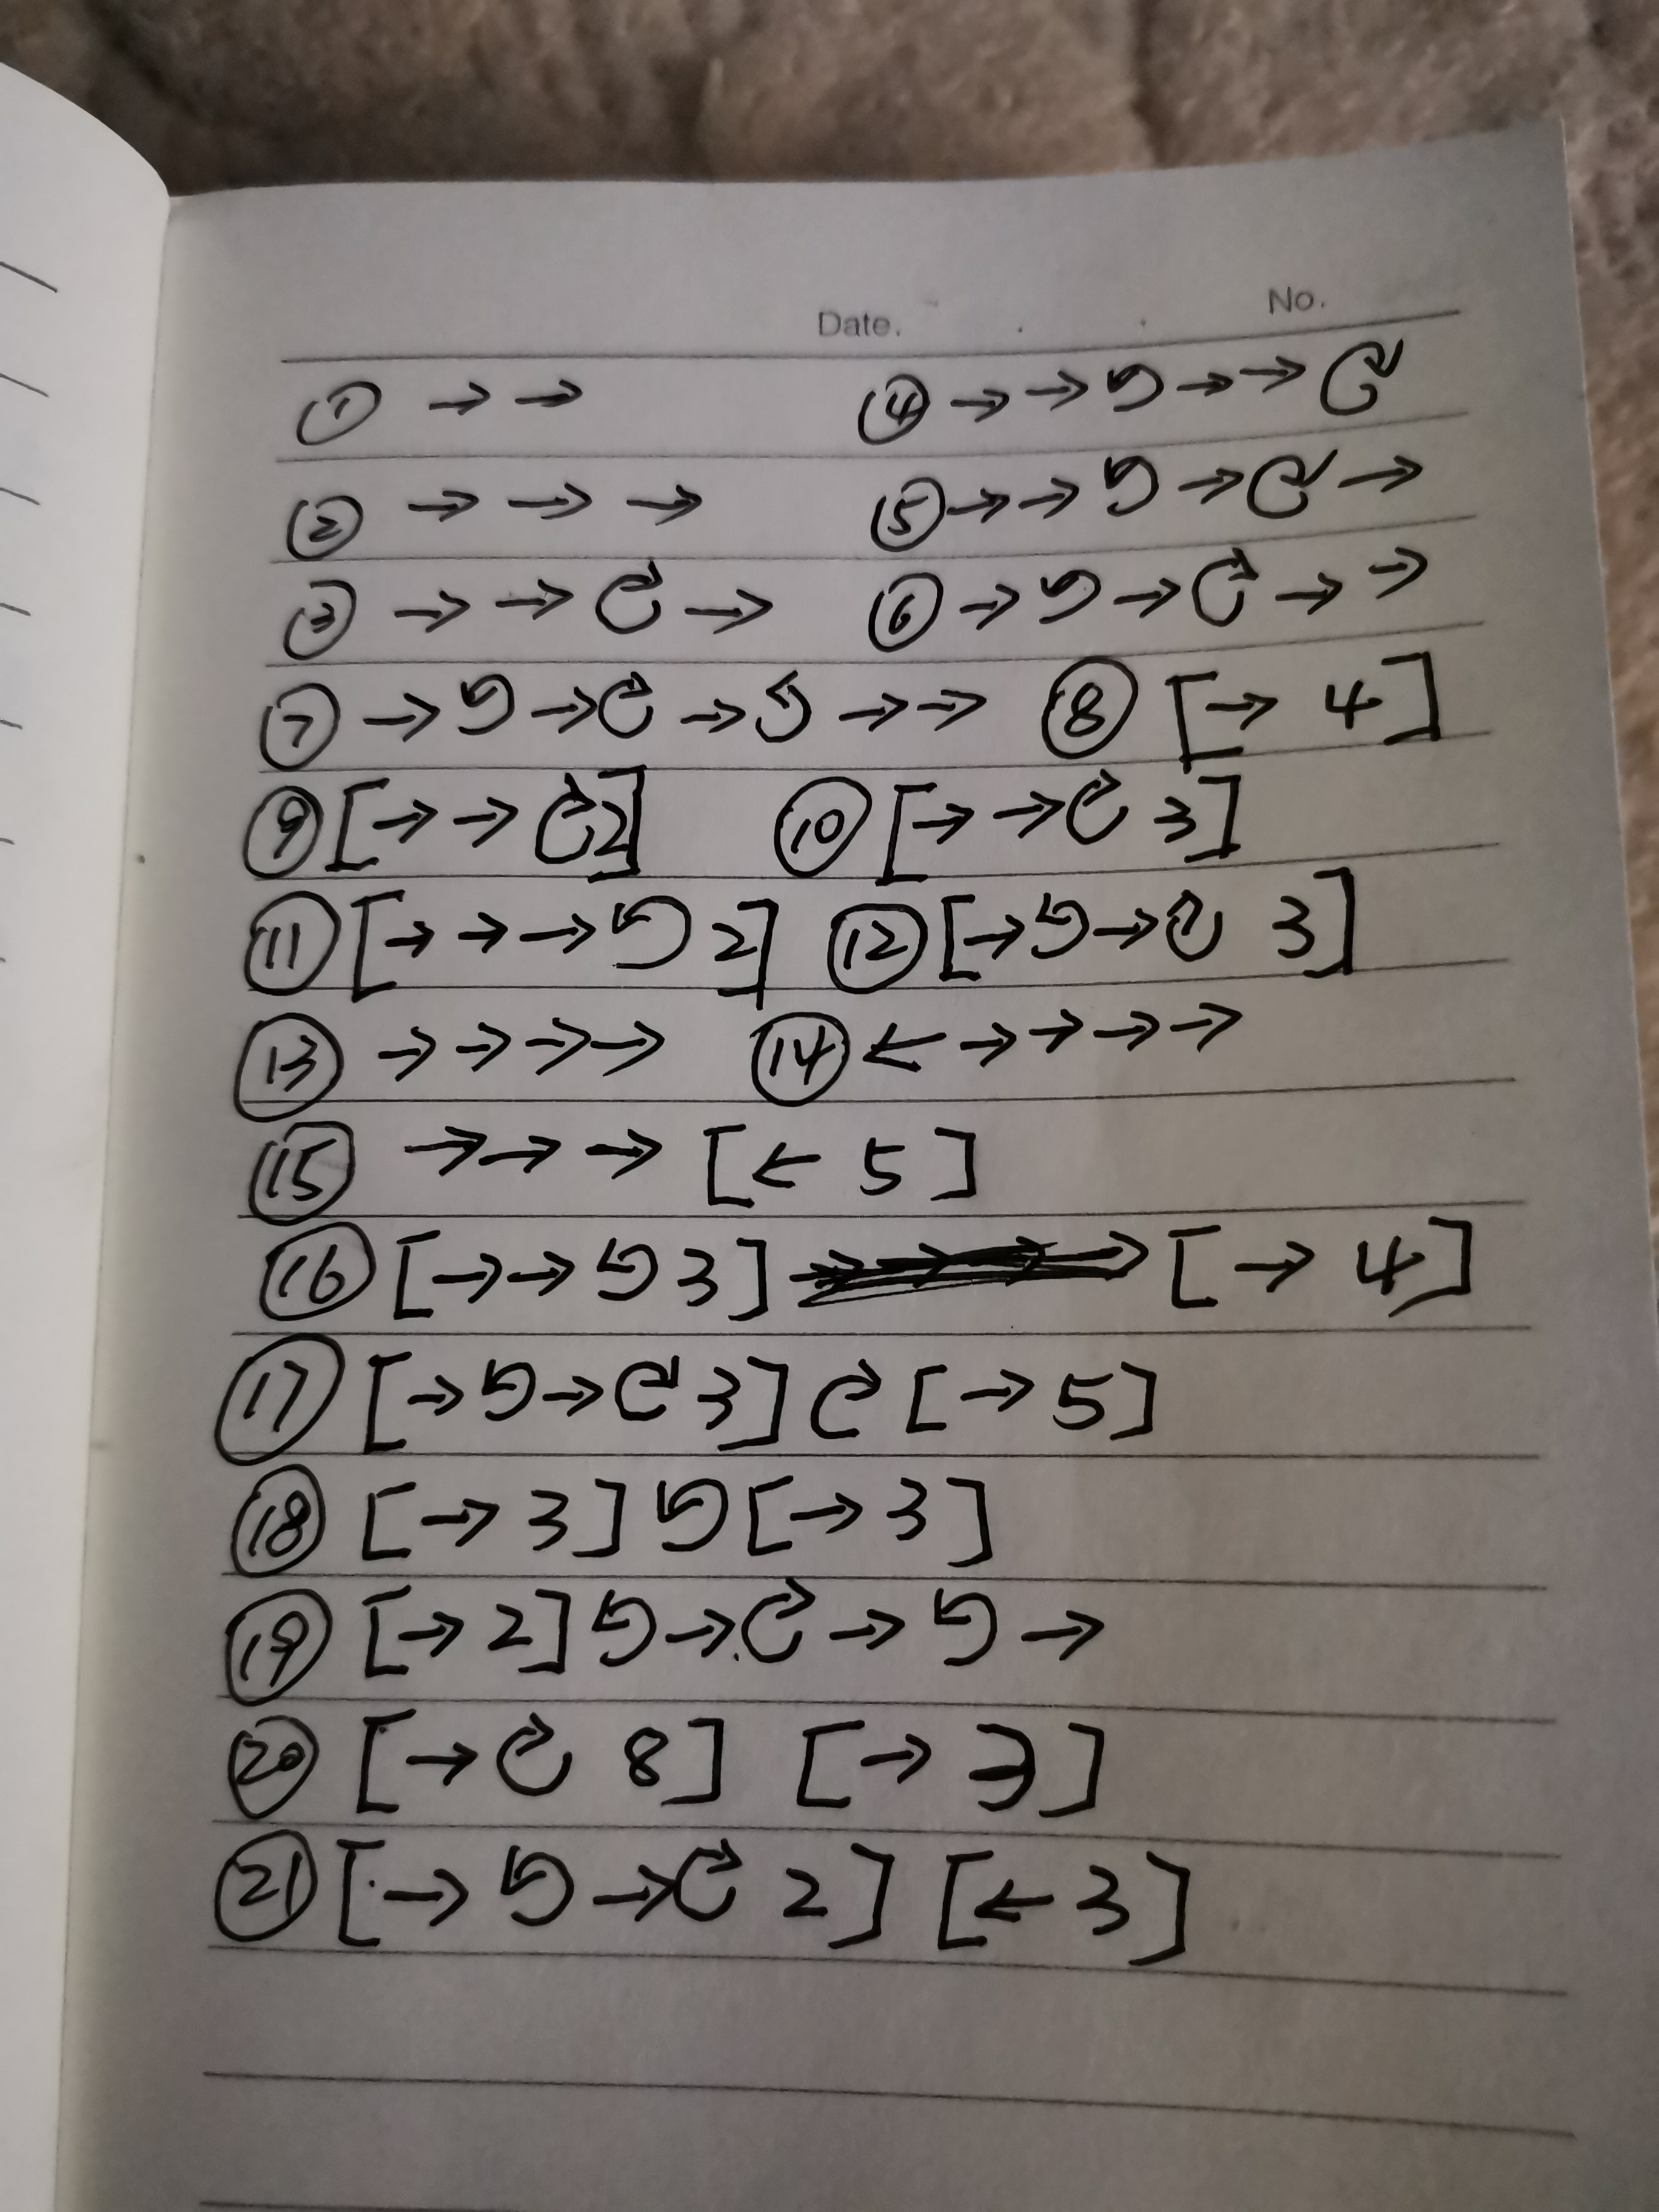 Date. No.
① → → ④ → → ↺ → → ↻
② → → → ⑤ → → ↺ → ↻ →
③ → → ↻ → ⑥ → ↺ → ↻ → →
⑦ → ↺ → ↻ → ↺ → → ⑧ [→ 4]
⑨ [→ → ↻ 2] ⑩ [→ → ↻ 3]
⑪ [→ → → ↺ 2] ⑫ [→ ↺ → ↻ 3]
⑬ → → → → ⑭ ← → → → →
⑮ → → → [← 5]
⑯ [→ → ↺ 3] [→ 4]
⑰ [→ ↺ → ↻ 3] ↻ [→ 5]
⑱ [→ 3] ↺ [→ 3]
⑲ [→ 2] ↺ → ↻ → ↺ →
⑳ [→ ↻ 8] [→ 3]
㉑ [→ ↺ → ↻ 2] [← 3]